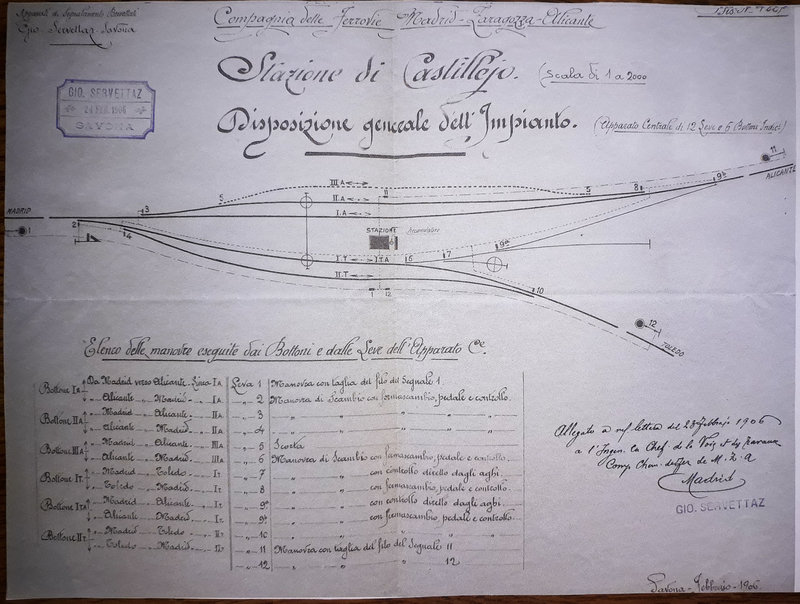 Apparati di Segnalamento Servettaz
Gio Servettaz Savona
Compagnia delle Ferrovie Madrid-Zaragozza-Alicante
Stazione di Castillejo.
(Scala di 1 a 2000
GIO. SERVETTAZ
24 FEB. 1906
SAVONA
Disposizione generale dell'Impianto.
(Apparato Centrale di 12 Leve e 6 Bottoni Indici)
11
ALICANTE
III.A
5
II
5
8
9b
II.A
MADRID
3
I.A
1
2
4
STAZIONE
Accumulatore
I.T
I.TA
6
7
9a
II.T
1 12
10
12
TOLEDO
Elenco delle manovre eseguite dai Bottoni e dalle Leve dell'Apparato Ce.
Bottone IA Da Madrid verso Alicante Linea IA Leva 1 Manovra con taglia del filo del Segnale 1
„ Alicante „ Madrid „ IA „ 2 Manovra di Scambio con fermascambio, pedale e controllo.
Bottone IIA „ Madrid „ Alicante „ IIA „ 3 „ „ „ „
„ Alicante „ Madrid „ IIA „ 4 „ „ „ „
Bottone IIIA „ Madrid „ Alicante „ IIIA „ 5 Scorta
„ Alicante „ Madrid „ IIIA „ 6 Manovra di Scambio con fermascambio, pedale e controllo.
Bottone IT „ Madrid „ Toledo „ IT „ 7 „ „ con controllo diretto dagli aghi.
„ Toledo „ Madrid „ IT „ 8 „ „ con fermascambio, pedale e controllo.
Bottone ITA „ Madrid „ Alicante „ IT „ 9a „ „ con controllo diretto dagli aghi.
„ Alicante „ Madrid „ IT „ 9b „ „ con fermascambio, pedale e controllo.
Bottone IIT „ Madrid „ Toledo „ IIT „ 10 „ „ „ „
„ Toledo „ Madrid „ IIT „ 11 Manovra con taglia del filo del Segnale 11
„ 12 „ „ „ 12
Allegato a lettera del 23 Febbrajo 1906
a l'Ingen. en Chef de la Voie et des Travaux
Comp. Chem. de fer de M. Z. A
Madrid
GIO. SERVETTAZ
Savona - Febbraio - 1906.